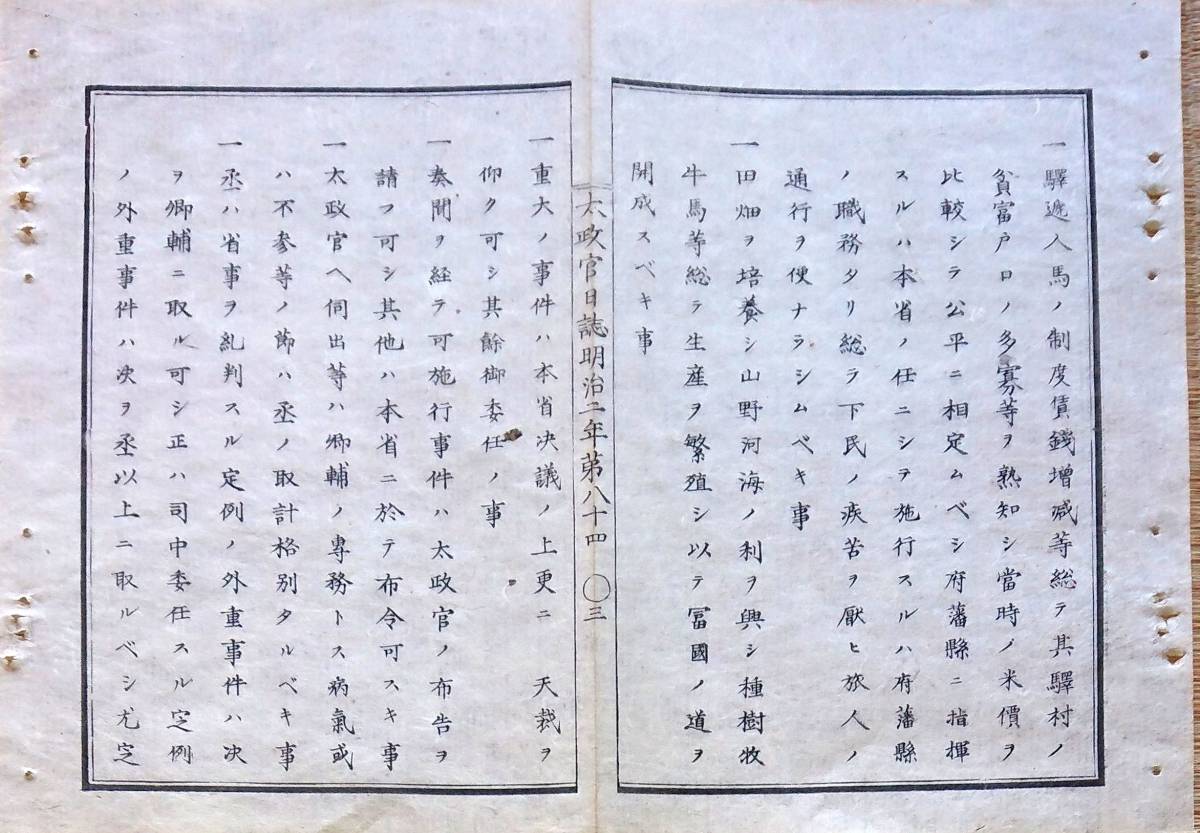 一驛遞人馬ノ制度賃錢增减等総テ其驛村ノ
貧富戸口ノ多寡等ヲ熟知シ當時ノ米價ヲ
比較シテ公平ニ相定ムベシ府藩縣ニ指揮
スルハ本省ノ任ニシテ施行スルハ府藩縣
ノ職務タリ総テ下民ノ疾苦ヲ厭ヒ旅人ノ
通行ヲ便ナラシムベキ事
一田畑ヲ培養シ山野河海ノ利ヲ興シ種樹牧
牛馬等総テ生産ヲ繁殖シ以テ冨國ノ道ヲ
開成スベキ事
太政官日誌明治二年第八十四 〇三
一重大ノ事件ハ本省决議ノ上更ニ 天裁ヲ
仰ク可シ其餘御委任ノ事
一奏聞ヲ経テ可施行事件ハ太政官ノ布告ヲ
請フ可シ其他ハ本省ニ於テ布令可スキ事
一太政官ヘ伺出等ハ卿輔ノ專務トス病氣或
ハ不参等ノ節ハ丞ノ取計格別タルベキ事
一丞ハ省事ヲ糺判スル定例ノ外重事件ハ决
ヲ卿輔ニ取ル可シ正ハ司中委任スル定例
ノ外重事件ハ决ヲ丞以上ニ取ルベシ尤定